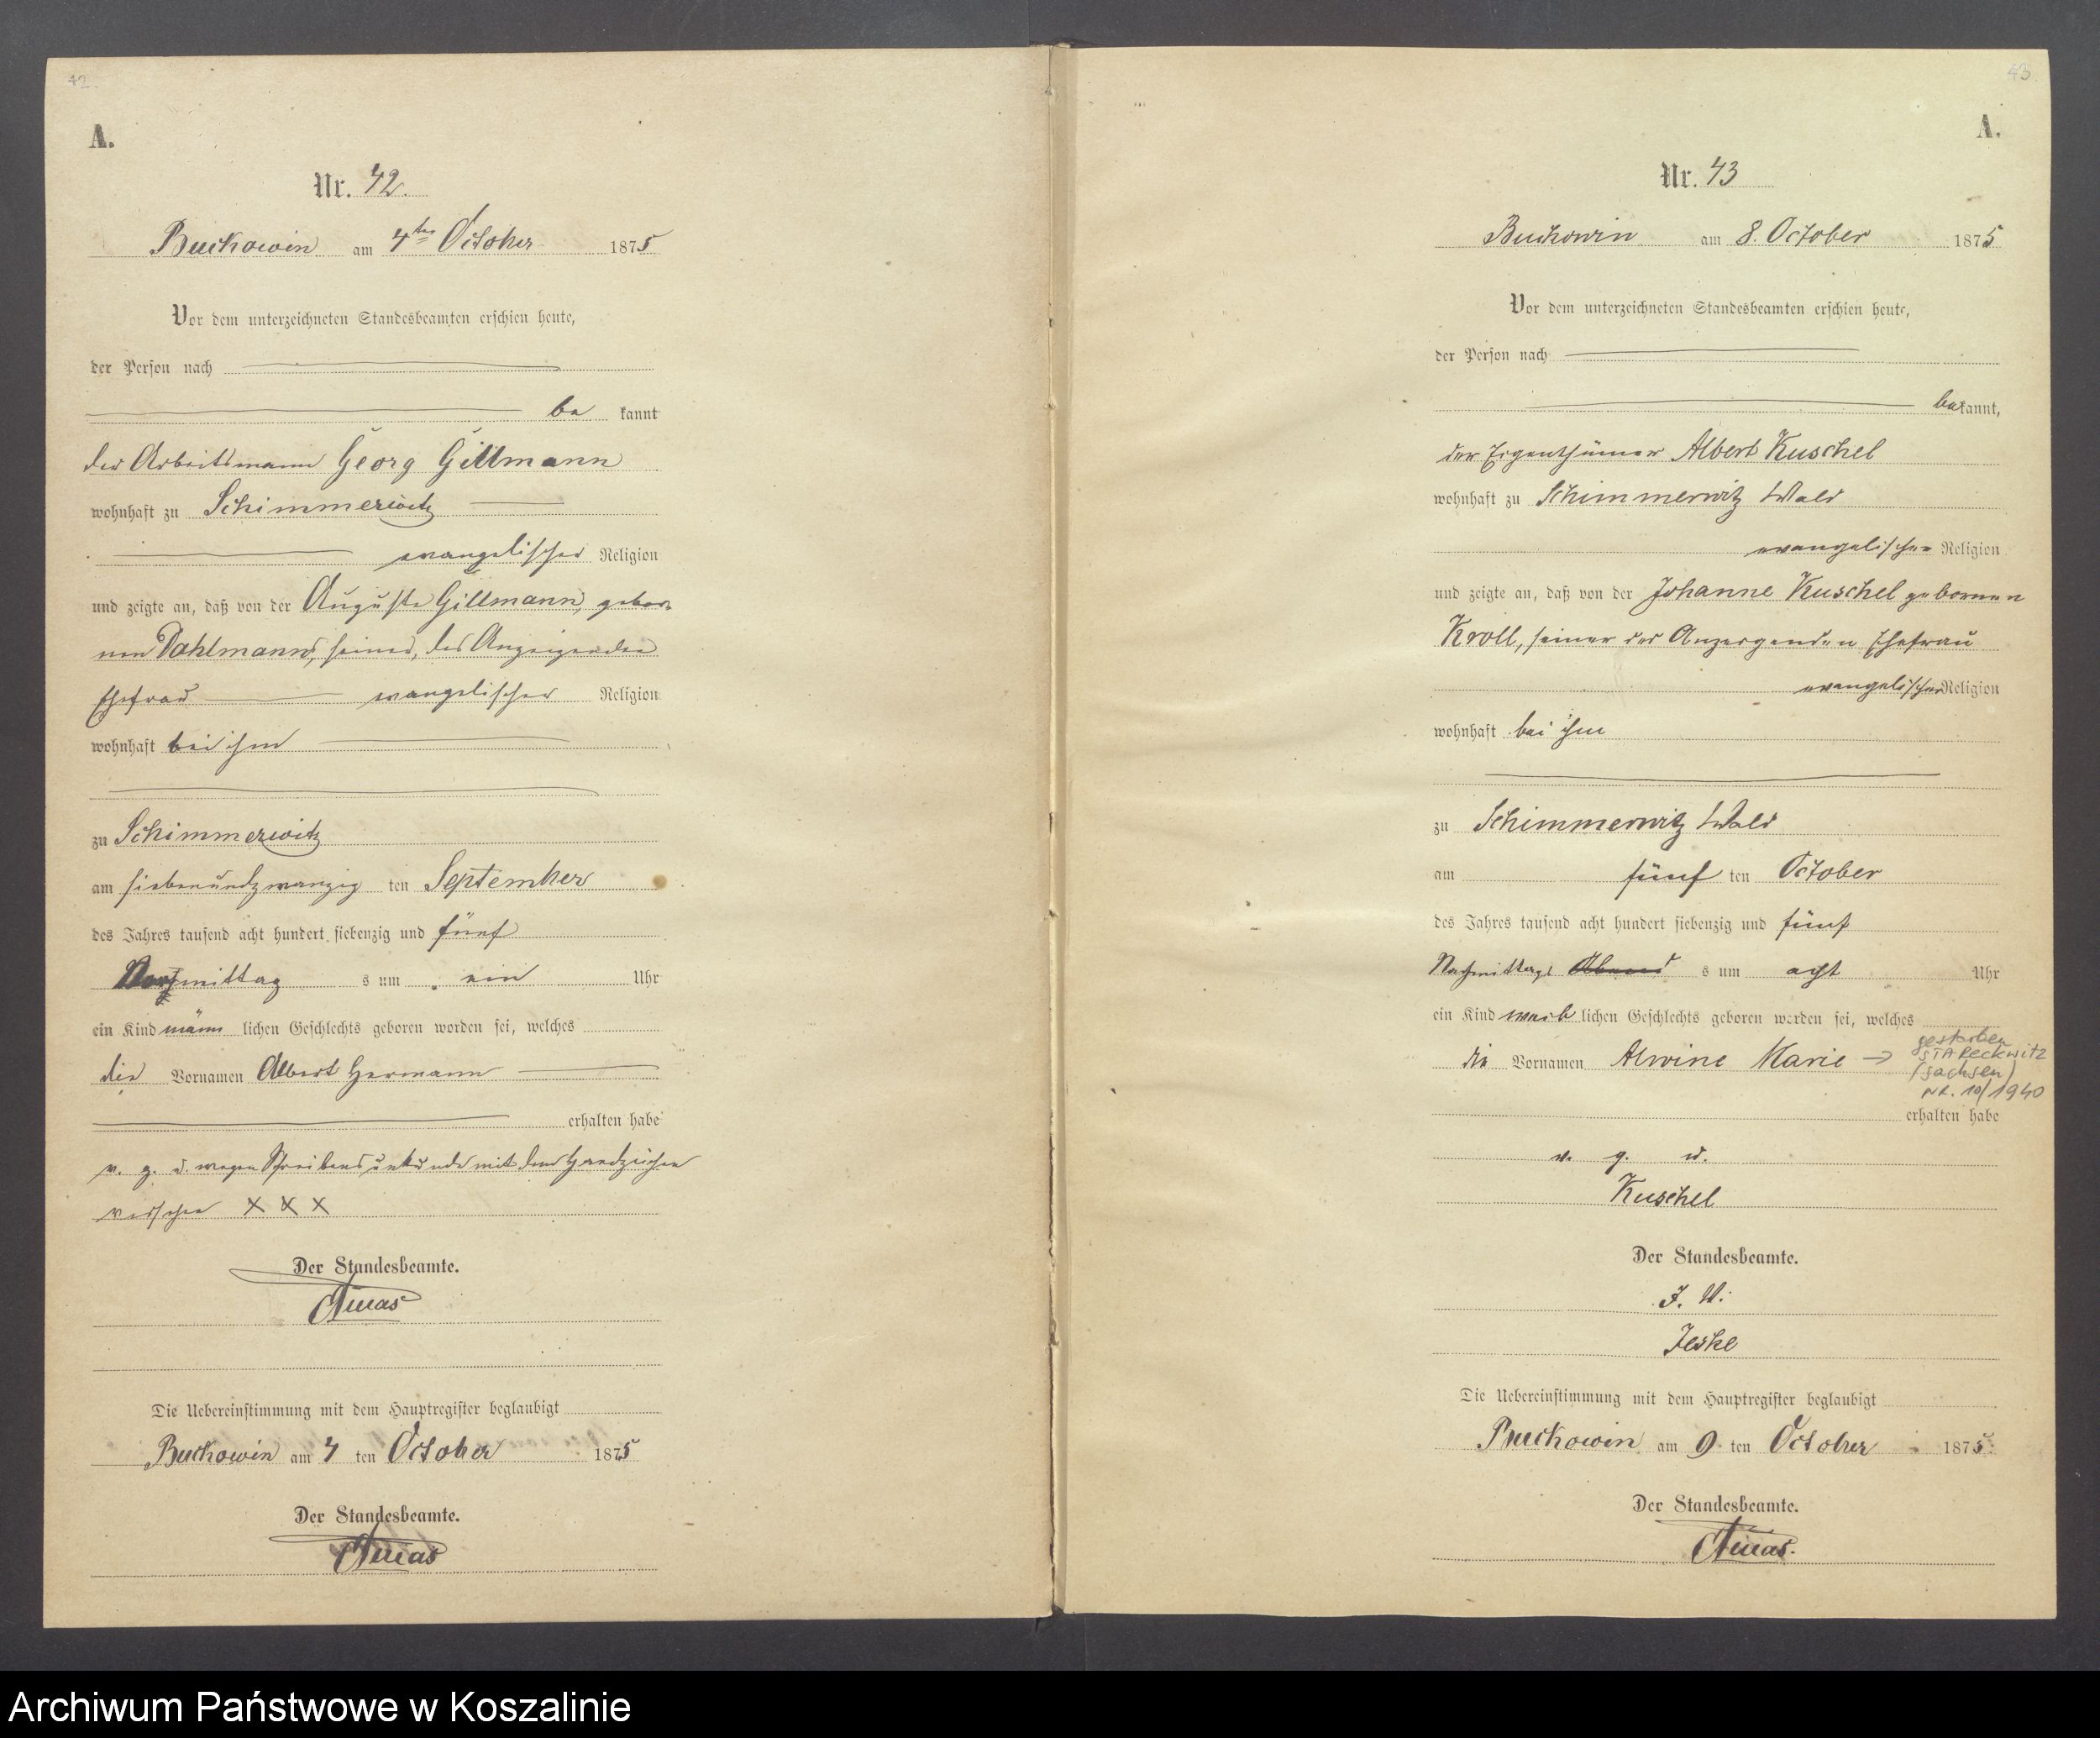 42.
A.
Nr. 42.
Buckowin am 4ten October 1875
Vor dem unterzeichneten Standesbeamten erschien heute,
der Person nach
be kannt
der Arbeitsmann Georg Gillmann
wohnhaft zu Schimmerwitz
evangelischer Religion
und zeigte an, daß von der Auguste Gillmann, gebor
nen Dahlmann, seiner, des Anzeigenden
Ehefrau evangelischer Religion
wohnhaft bei ihm
zu Schimmerwitz
am siebenundzwanzig ten September
des Jahres tausend acht hundert siebenzig und fünf
mittag s um ein Uhr
ein Kind männ lichen Geschlechts geboren worden sei, welches
die Vornamen Albert Hermann
erhalten habe
v. g. u. wegen Schreibensunkunde mit dem Handzeichen
versehen X X X
Der Standesbeamte.
Die Uebereinstimmung mit dem Hauptregister beglaubigt
Buckowin am 4 ten October 1875
Der Standesbeamte.
43.
A.
Nr. 43
Buckowin am 8. October 1875
Vor dem unterzeichneten Standesbeamten erschien heute,
der Person nach
bekannt,
der Eigenthümer Albert Kuschel
wohnhaft zu Schimmerwitz Wald
evangelischer Religion
und zeigte an, daß von der Johanne Kuschel gebornen
Kroll, seiner des Anzeigenden Ehefrau
evangelischer Religion
wohnhaft bei ihm
zu Schimmerwitz Wald
am fünf ten October
des Jahres tausend acht hundert siebenzig und fünf
Nachmittags Abend s um acht Uhr
ein Kind weib lichen Geschlechts geboren worden sei, welches
die Vornamen Alwine Marie →
gestorben
STA Reckwitz
(Sachsen)
Nr. 10/1940
erhalten habe
v. g. u.
Kuschel
Der Standesbeamte.
J. V.
Jeske
Die Uebereinstimmung mit dem Hauptregister beglaubigt
Buckowin am 9 ten October 1875
Der Standesbeamte.
Archiwum Państwowe w Koszalinie